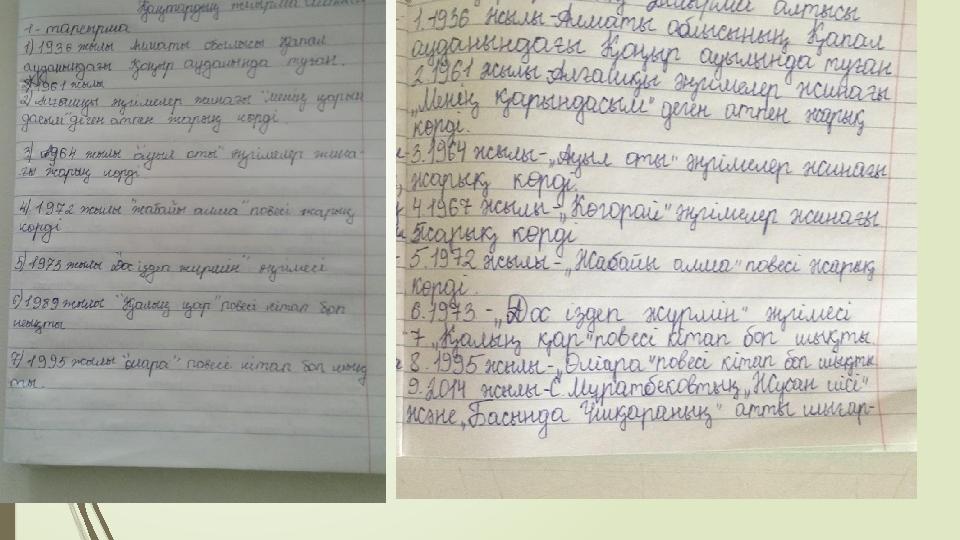 Қаңтардың жиырма алтысы
1 - тапсырма
1) 1936 жылы Алматы облысы Қапал
ауданындағы Қоңыр ауданында туған.
1961 жылы
2) Алғашқы әңгімелер жинағы "Менің қарын
дасым" деген атпен жарық көрді.
3) 1964 жылы "Ауыл оты" әңгімелер жина-
ғы жарық көрді
4) 1972 жылы "жабайы алма" повесі жарық
көрді
5) 1973 жылы "Дос іздеп жүрмін" әңгімесі
6) 1989 жылы "Қалың қар" повесі кітап боп
шықты
7) 1995 жылы "өлара" повесі кітап боп шық
ты.
жиырма алтысы
1.1936 жылы-Алматы облысының Қапал
ауданындағы Қоңыр ауылында туған
2.1961 жылы Алғашқы әңгімелер жинағы
„Менің қарындасым" деген атпен жарық
көрді.
3.1964 жылы-„Ауыл оты" әңгімелер жинағы
жарық көрді.
4.1967 жылы-„Көгорай" әңгімелер жинағы
жарық көрді
5.1972 жылы-„Жабайы алма" повесі жарық
көрді.
6.1973 -„Дос іздеп жүрмін" әңгімесі
7 „Қалың қар" повесі кітап боп шықты
8.1995 жылы-„Өліара" повесі кітап боп шықты
9.2014 жылы-С. Мұратбековтың „Жусан иісі"
және „Басында Үшқараның" атты шығар-